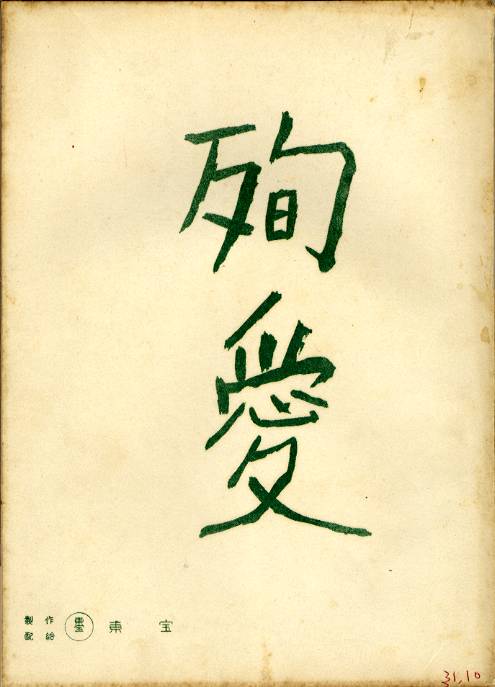 殉愛
製作
配給
東宝
31.10